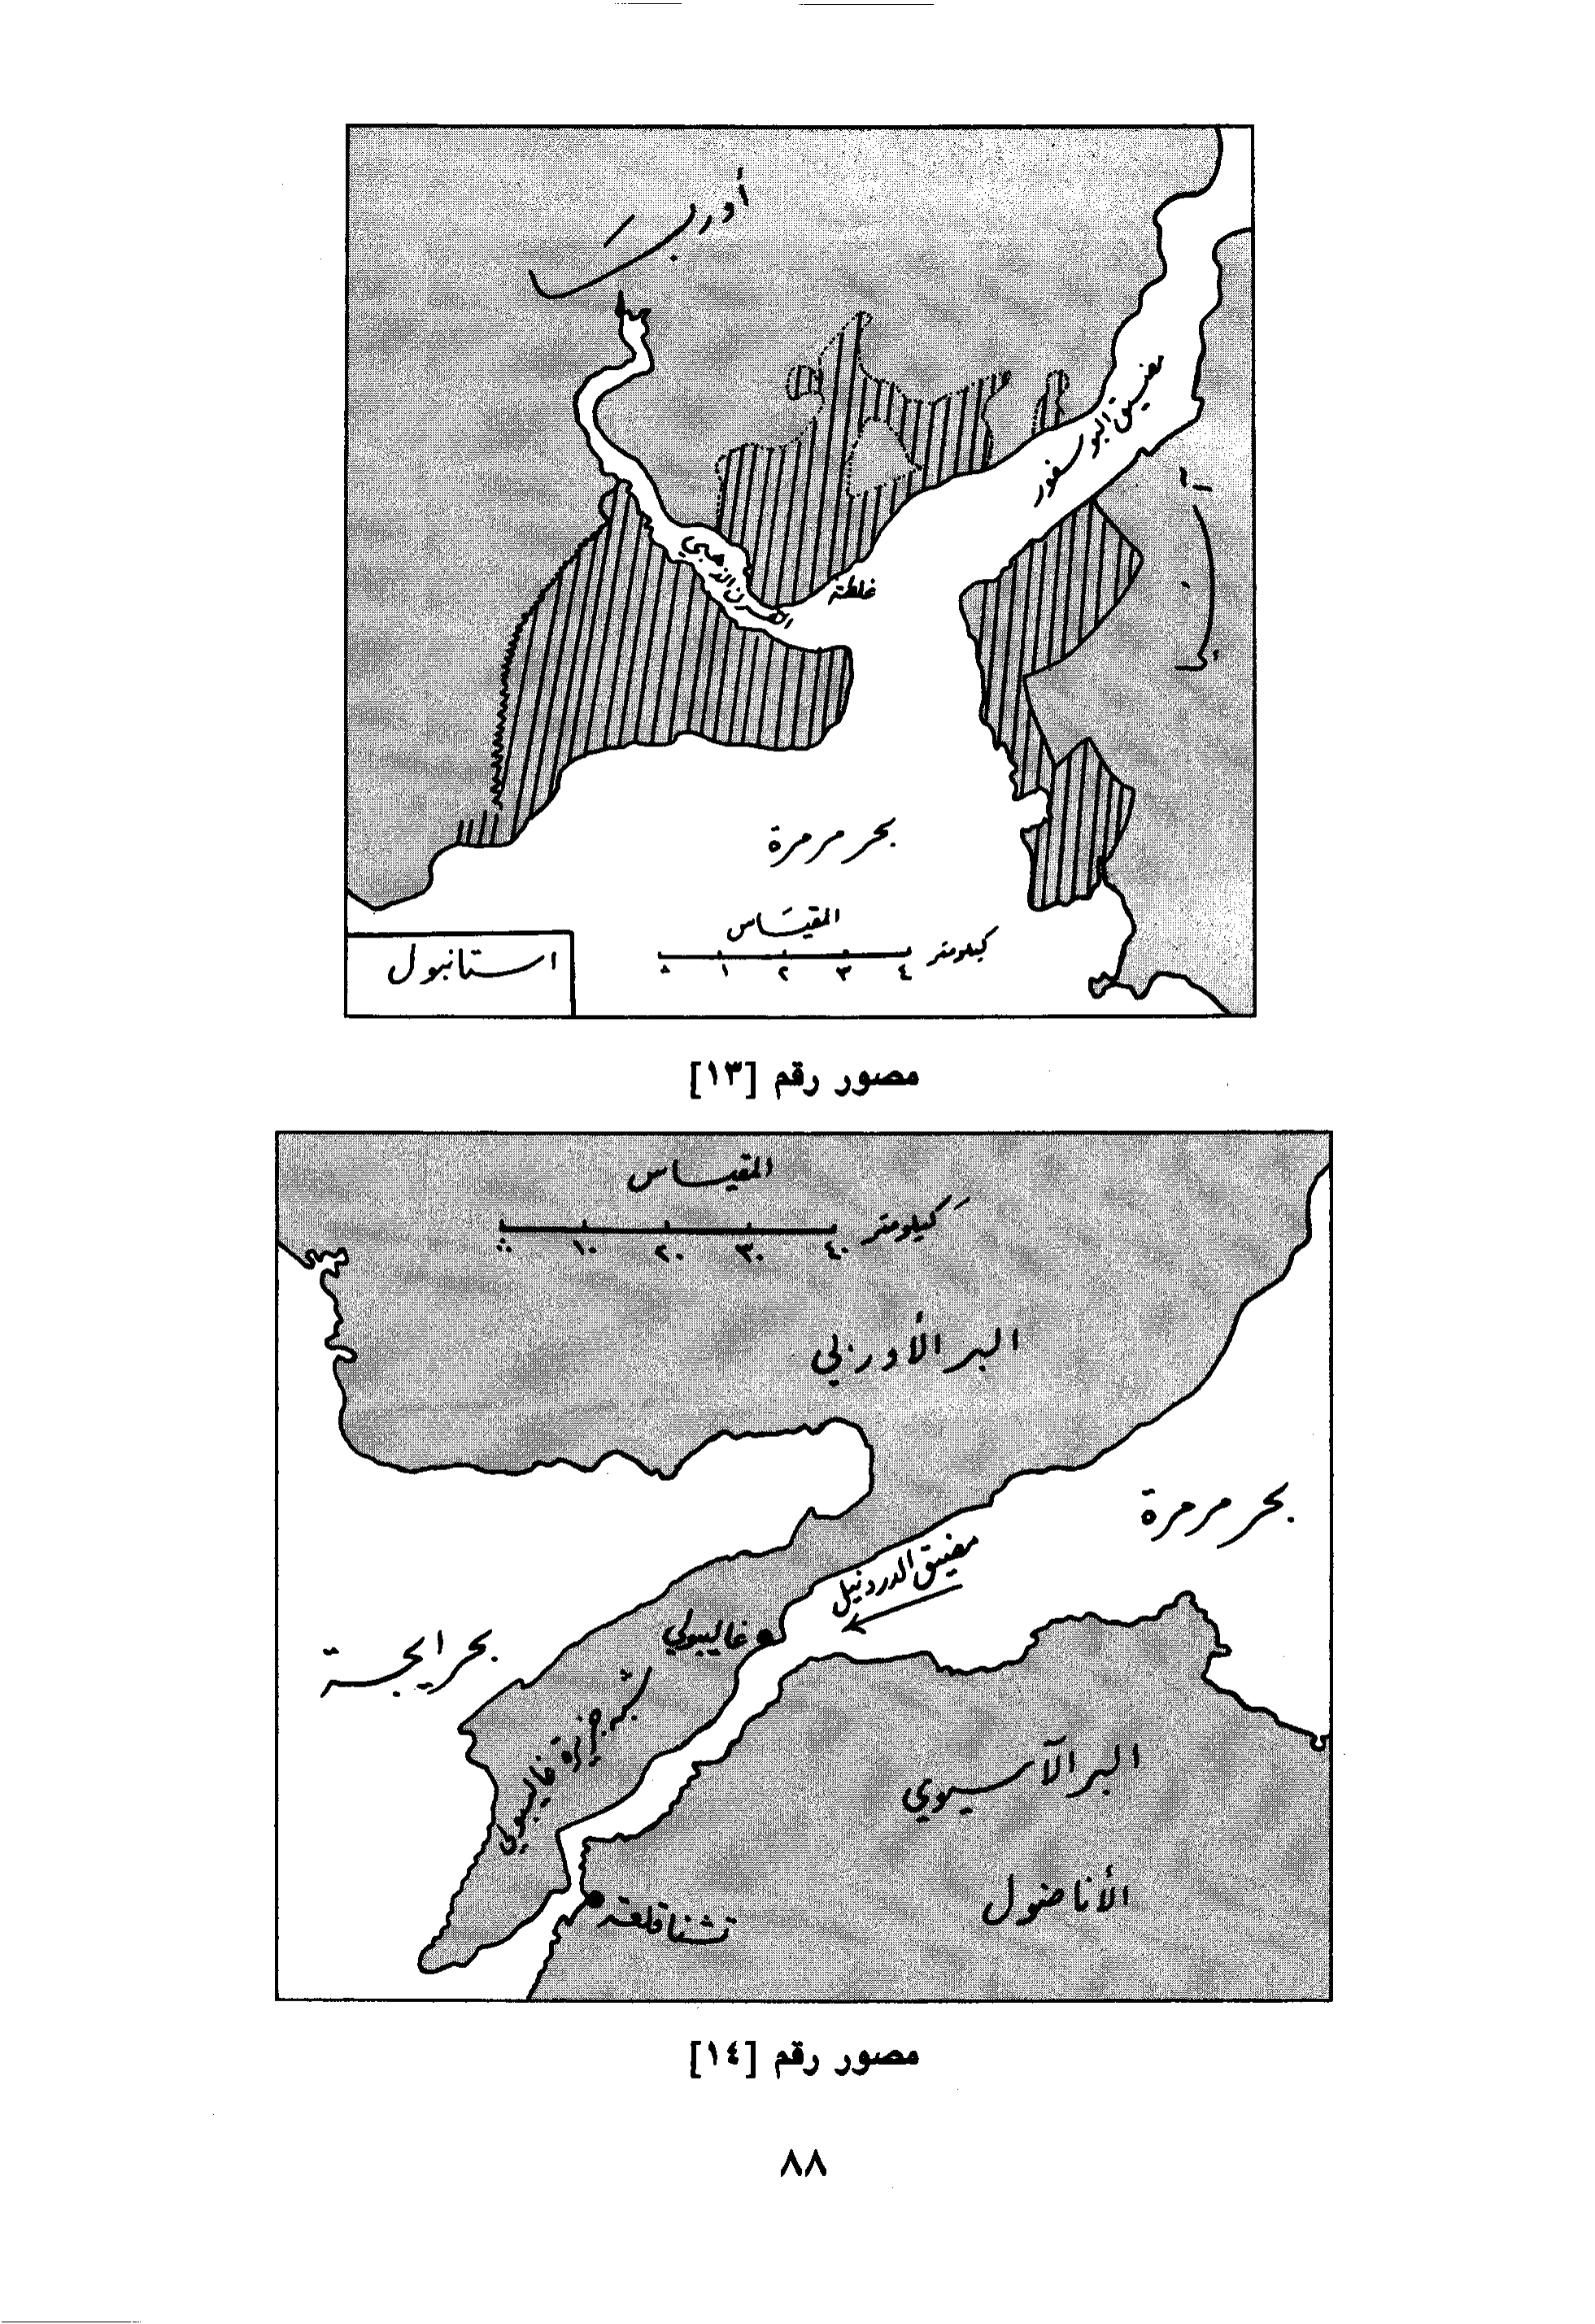 أوربا
مضيق البوسفور
آسيا
القرن الذهبي
غلطة
بحر مرمرة
المقياس
٠ ١ ٢ ٣ ٤ كيلومتر
استانبول
مصور رقم [١٣]
المقياس
٠ ١٠ ٢٠ ٣٠ ٤٠ كيلومتر
البر الأوربي
بحر مرمرة
مضيق الدردنيل
غاليبولي
بحر ايجة
شبه جزيرة غاليبولي
البر الآسيوي
الأناضول
تشناقلعة
مصور رقم [١٤]
٨٨